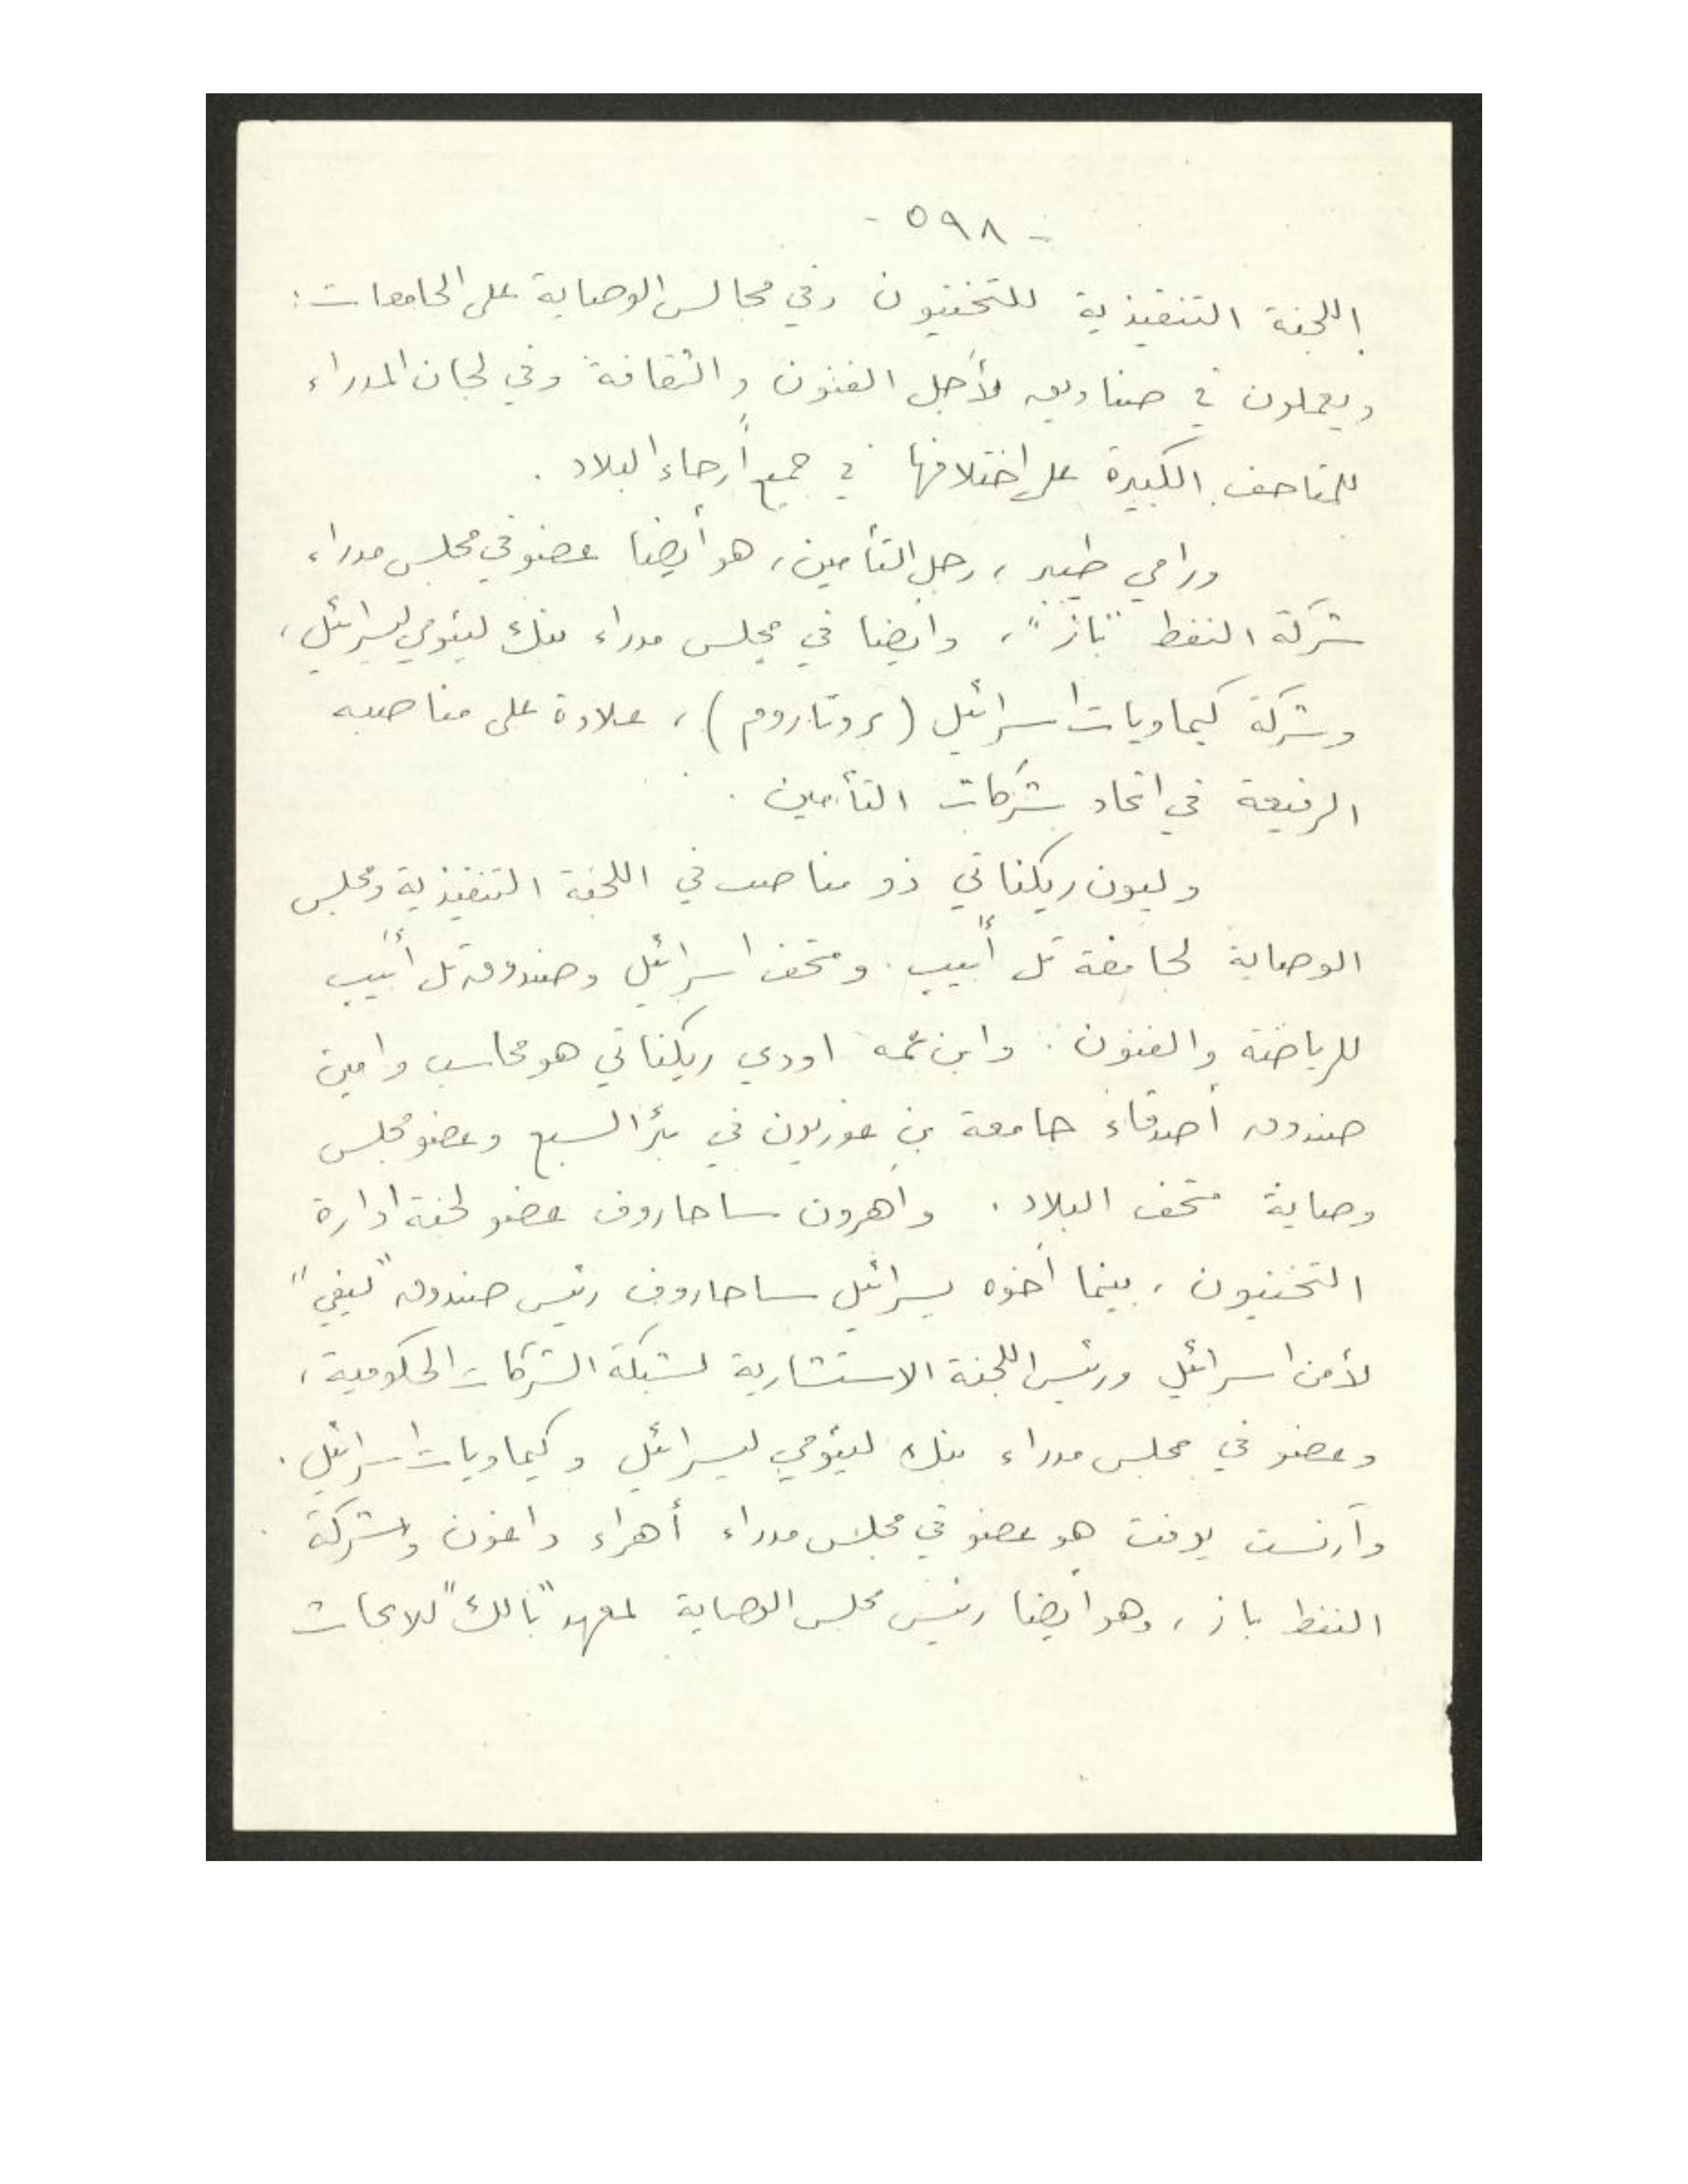 - ٥٩٨ -
اللجنة التنفيذية للتخنيون وفي مجالس الوصاية على الجامعات:
ويعملون في صناديق لأجل الفنون والثقافة وفي لجان المدراء
للمتاحف الكبيرة على اختلافها في جميع أرجاء البلاد.
ورامي طيبر، رجل التأمين، هو أيضا عضو في مجلس مدراء
شركة النفط "باز"، وأيضا في مجلس مدراء بنك ليئومي ليسرائيل،
وشركة كيماويات اسرائيل (بروتاروم)، علاوة على مناصبه
الرفيعة في اتحاد شركات التأمين.
وليون ريكناتي ذو مناصب في اللجنة التنفيذية ومجلس
الوصاية لجامعة تل أبيب. ومتحف اسرائيل وصندوق تل أبيب
للرياضة والفنون. وابن عمه اودي ريكناتي هو محاسب وامين
صندوق أصدقاء جامعة بن غوريون في بئر السبع وعضو مجلس
وصاية متحف البلاد. واهرون ساحاروف عضو لجنة ادارة
التخنيون، بينما أخوه يسرائيل ساحاروف رئيس صندوق "ليفي"
لأمن اسرائيل ورئيس اللجنة الاستشارية لشبكة الشركات الحكومية،
وعضو في مجلس مدراء بنك ليئومي ليسرائيل وكيماويات اسرائيل.
وآرنست يوفت هو عضو في مجلس مدراء أهراء داغون وشركة
النفط باز، وهو أيضا رئيس مجلس الوصاية لمعهد "بالك" للابحاث